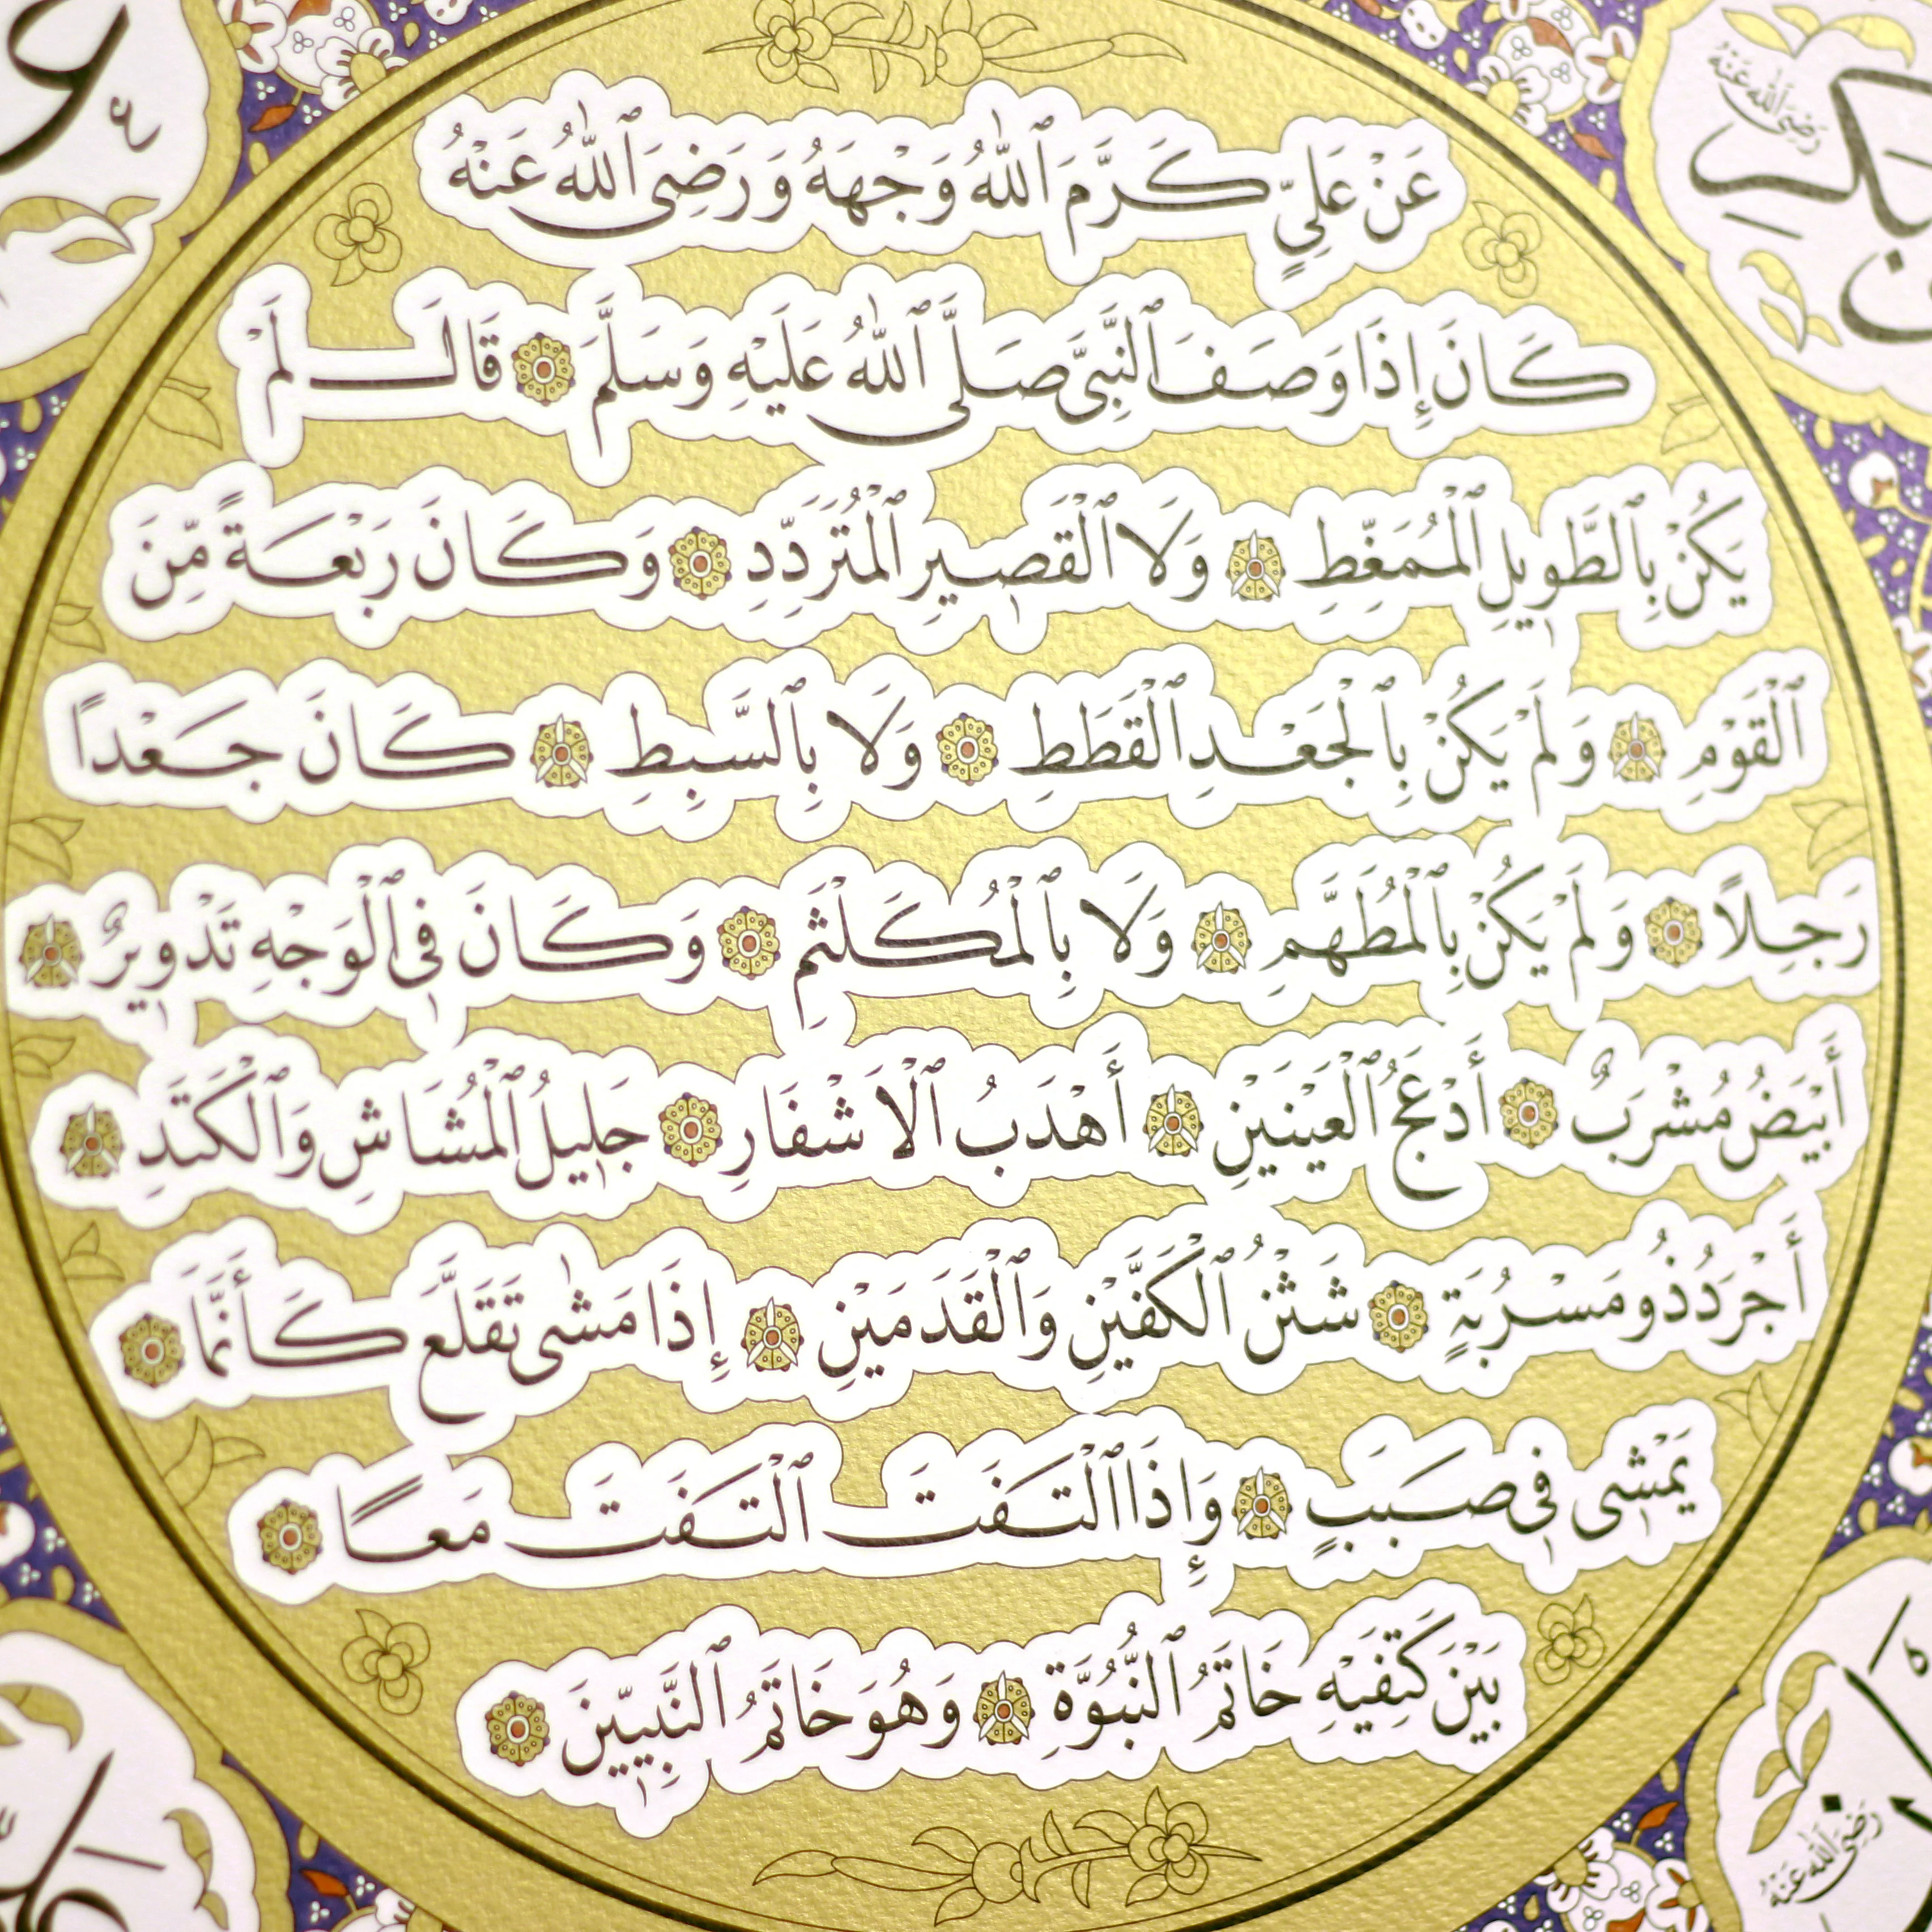 عَنْ عَلِيٍّ كَرَّمَ ٱللّٰهُ وَجْهَهُ وَرَضِىَ ٱللّٰهُ عَنْهُ
كَانَ إِذَا وَصَفَ ٱلنَّبِىَّ صَلَّى ٱللّٰهُ عَلَيْهِ وَسَلَّمَ قَالَ لَمْ
يَكُنْ بِٱلطَّوِيلِ ٱلْمُمَغَّطِ وَلَا ٱلْقَصِيرِ ٱلْمُتَرَدِّدِ وَكَانَ رَبْعَةً مِّنَ
ٱلْقَوْمِ وَلَمْ يَكُنْ بِٱلْجَعْدِ ٱلْقَطَطِ وَلَا بِٱلسَّبِطِ كَانَ جَعْدًا
رَجِلًا وَلَمْ يَكُنْ بِٱلْمُطَهَّمِ وَلَا بِٱلْمُكَلْثَمِ وَكَانَ فِى ٱلْوَجْهِ تَدْوِيرٌ
أَبْيَضُ مُشْرَبٌ أَدْعَجُ ٱلْعَيْنَيْنِ أَهْدَبُ ٱلْأَشْفَارِ جَلِيلُ ٱلْمُشَاشِ وَٱلْكَتَدِ
أَجْرَدُ ذُو مَسْرُبَةٍ شَثْنُ ٱلْكَفَّيْنِ وَٱلْقَدَمَيْنِ إِذَا مَشٰى تَقَلَّعَ كَأَنَّمَا
يَمْشِى فِى صَبَبٍ وَإِذَا ٱلْتَفَتَ ٱلْتَفَتَ مَعًا
بَيْنَ كَتِفَيْهِ خَاتَمُ ٱلنُّبُوَّةِ وَهُوَ خَاتَمُ ٱلنَّبِيِّينَ
رَضِىَ ٱللّٰهُ عَنْهُ
رَضِىَ ٱللّٰهُ عَنْهُ